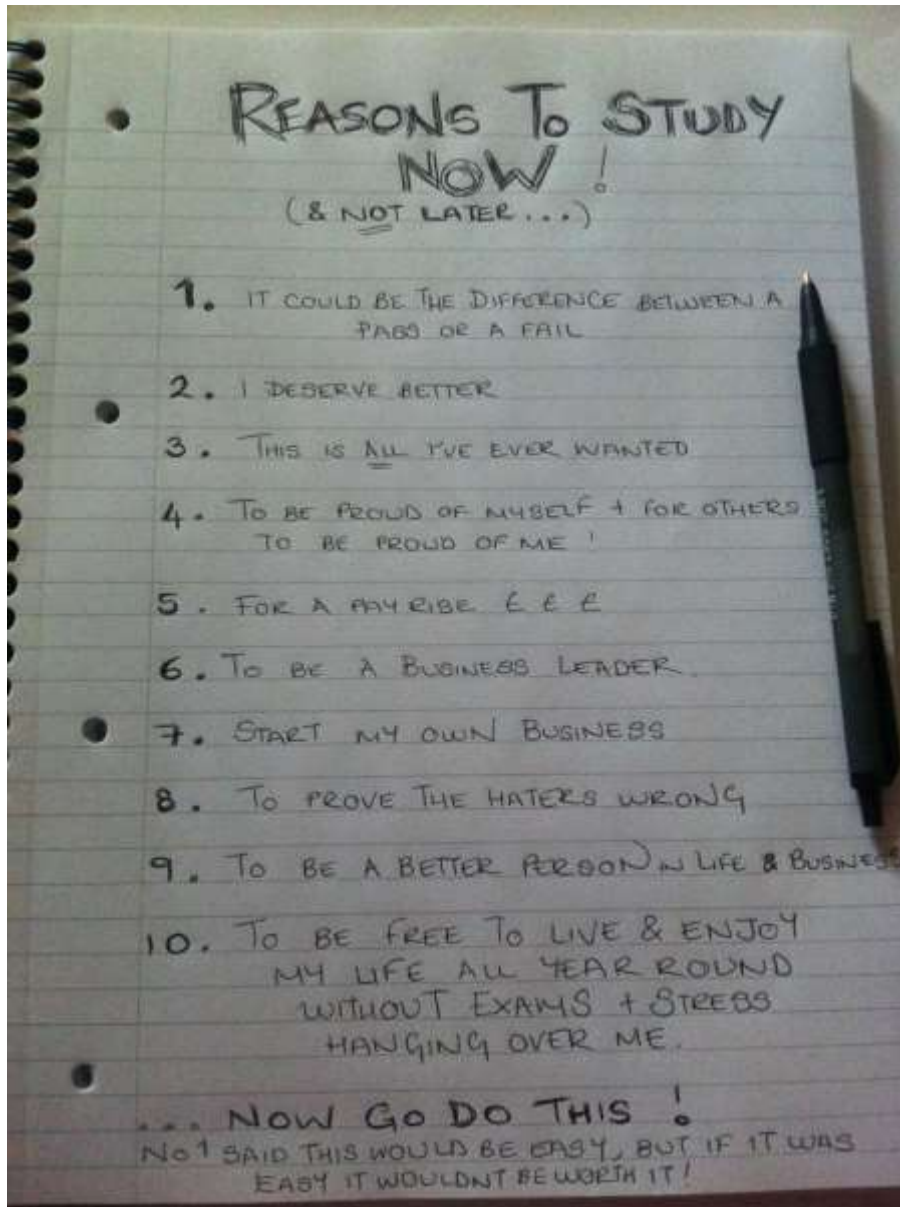 REASONS TO STUDY
NOW !
(& NOT LATER...)
1. IT COULD BE THE DIFFERENCE BETWEEN A
PASS OR A FAIL
2. I DESERVE BETTER
3. THIS IS ALL I'VE EVER WANTED
4. TO BE PROUD OF MYSELF + FOR OTHERS
TO BE PROUD OF ME !
5. FOR A PAY RISE £ £ £
6. TO BE A BUSINESS LEADER.
7. START MY OWN BUSINESS
8. TO PROVE THE HATERS WRONG
9. TO BE A BETTER PERSON IN LIFE & BUSINESS
10. TO BE FREE TO LIVE & ENJOY
MY LIFE ALL YEAR ROUND
WITHOUT EXAMS + STRESS
HANGING OVER ME.
... NOW GO DO THIS !
NO1 SAID THIS WOULD BE EASY, BUT IF IT WAS
EASY IT WOULDNT BE WORTH IT !